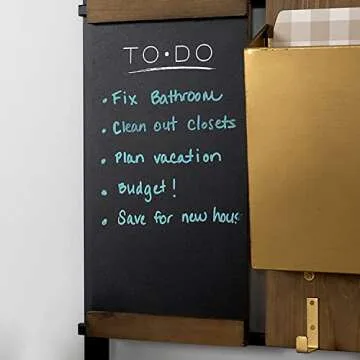 TO•DO
• Fix Bathroom
• Clean out closets
• Plan vacation
• Budget!
• Save for new hous